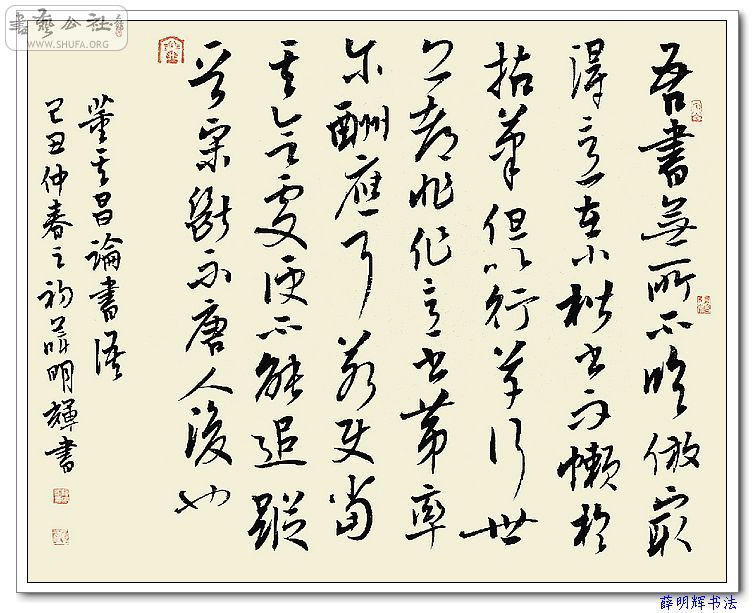 吾書無所不臨倣最
得意在小楷書而懶於
拈筆但以行草行世
亦都非作意書第率
尔酬應耳若使當
其合處便不能追蹤
晋宋斷不唐人後也
董其昌論書語
己丑仲春之初薛明輝書
書藝公社
WWW.SHUFA.ORG
薛明辉书法